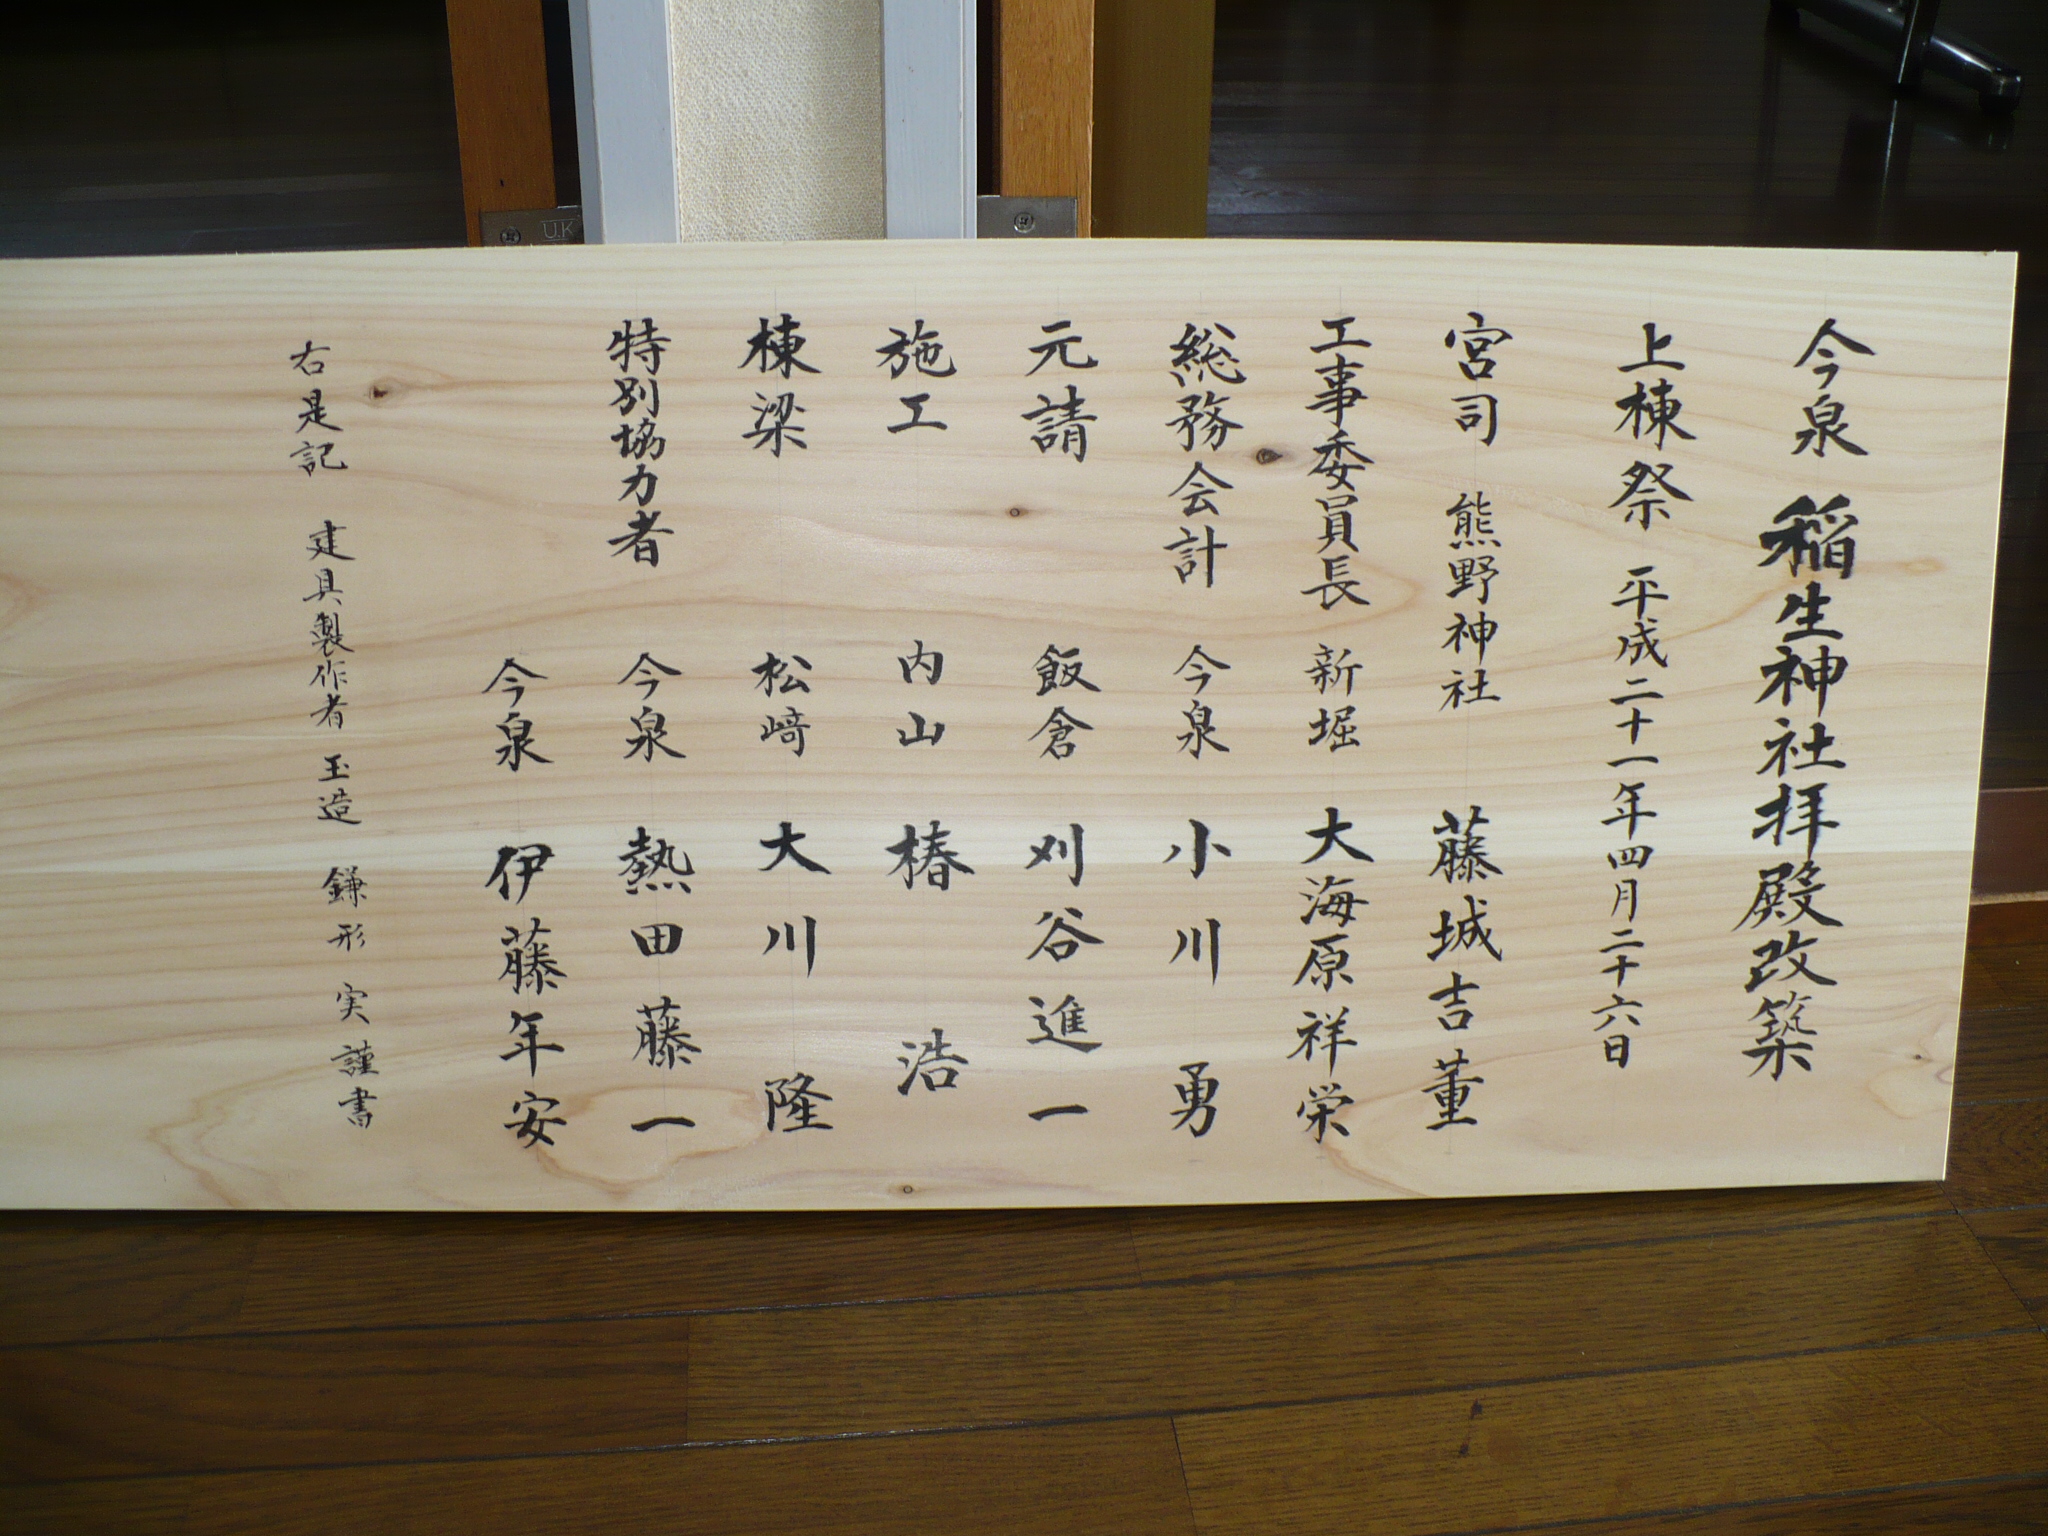 今泉 稲生神社拝殿改築
上棟祭 平成二十一年四月二十六日
宮司 熊野神社 藤城吉董
工事委員長 新堀 大海原祥栄
総務会計 今泉 小川 勇
元請 飯倉 刈谷進一
施工 内山 椿 浩
棟梁 松﨑 大川 隆
特別協力者 今泉 熱田藤一
今泉 伊藤年安
右是記 建具製作者 玉造 鎌形 実 謹書
U.K